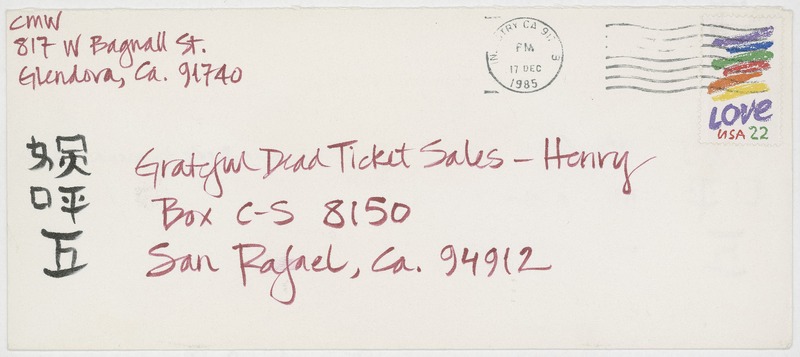 CMW
817 W Bagnall St.
Glendora, Ca. 91740
PM
17 DEC
1985
LOVE
USA 22
娯
呼
五
Grateful Dead Ticket Sales - Henry
Box C-S 8150
San Rafael, Ca. 94912